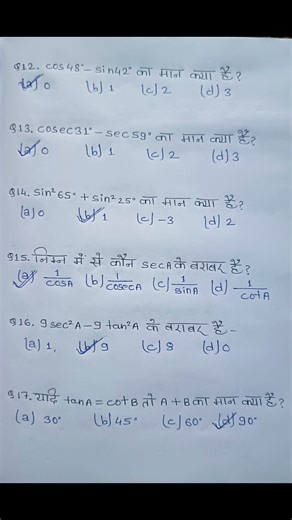 Q12. cos48°-sin42° का मान क्या हैं?
(a) 0 (b) 1 (c) 2 (d) 3
Q13. cosec31°-sec59° का मान क्या हैं?
(a) 0 (b) 1 (c) 2 (d) 3
Q14. sin²65°+sin²25° का मान क्या हैं?
(a) 0 (b) 1 (c) -3 (d) 2
Q15. निम्न में से कौन secA के बराबर हैं?
(a) 1/cosA (b) 1/cosecA (c) 1/sinA (d) 1/cotA
Q16. 9sec²A-9tan²A के बराबर हैं-
(a) 1, (b) 9 (c) 8 (d) 0
Q17. यदि tanA=cotB तो A+B का मान क्या हैं?
(a) 30° (b) 45° (c) 60° (d) 90°